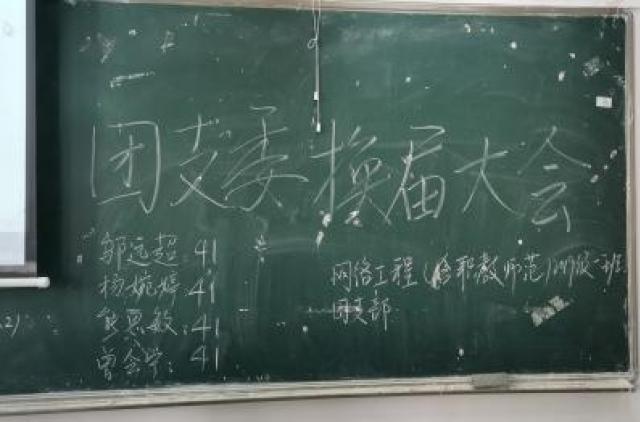 团支委换届大会
邹远超:41
杨婉婷:41
熊思敏:41
曾会学:41
网络工程(含职教师范)201级一班
团支部
2)